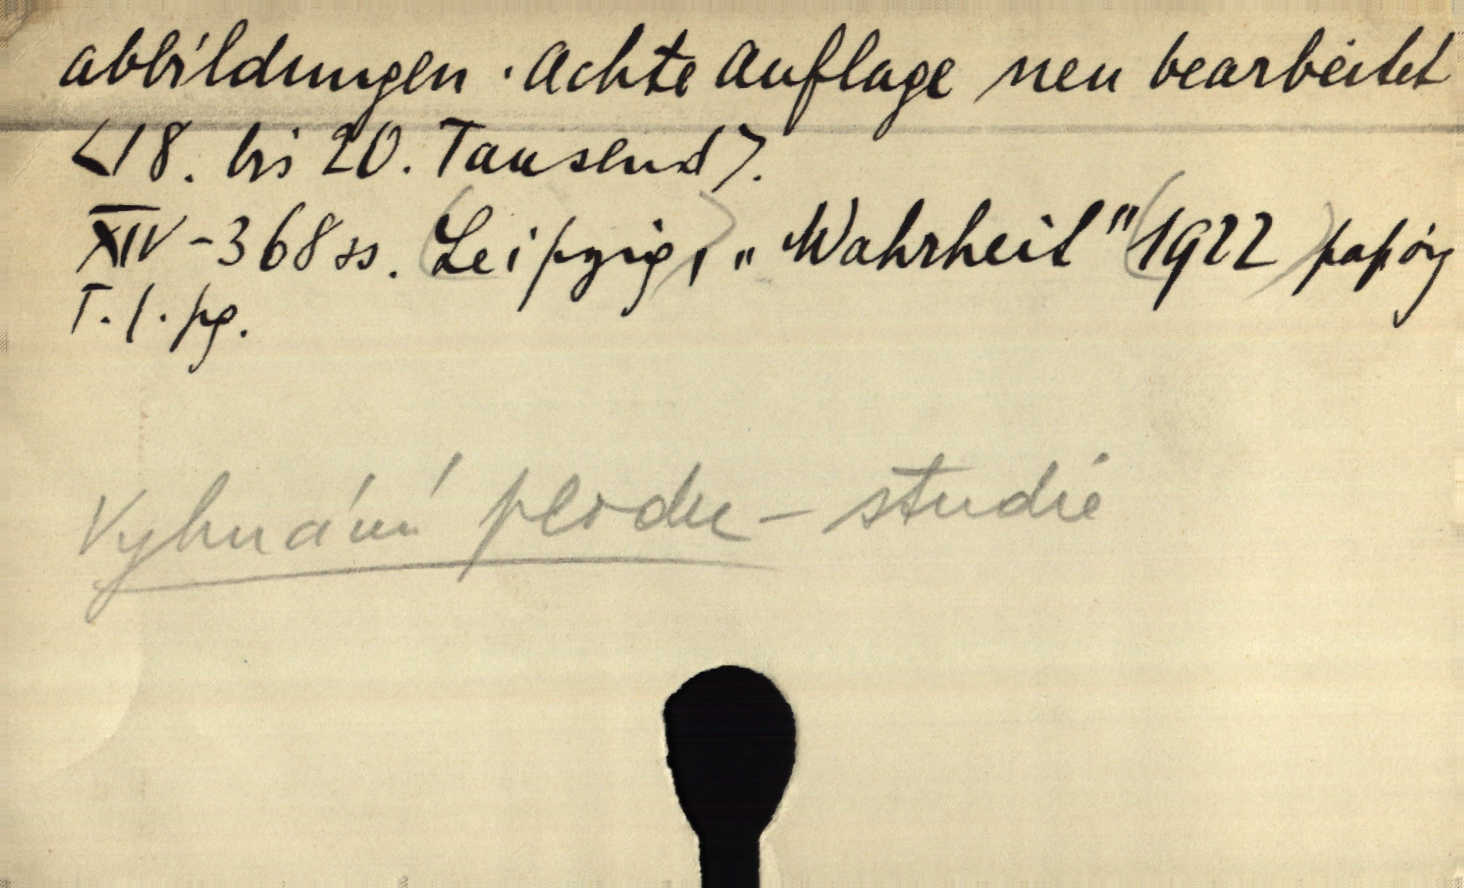 abbildungen. Achte Auflage neu bearbeitet
<18. bis 20. Tausend>.
XIV-368 ss. (Leipzig), „Wahrheit" (1922) papíry
T. f. pg.
Vyhnání plodu - studie